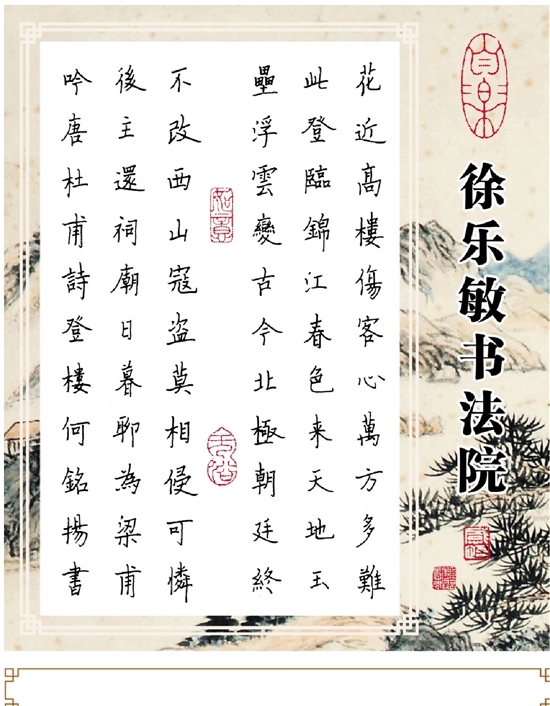 徐乐敏书法院
花近高樓傷客心萬方多難
此登臨錦江春色来天地玉
壘浮雲變古今北極朝廷終
不改西山寇盗莫相侵可憐
後主還祠廟日暮聊為梁甫
吟唐杜甫詩登樓何銘揚書
如意